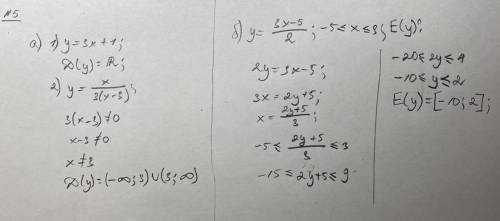 №5
а) 1) y=3x+1;
D(y)=ℝ;
2) y=x/3(x-3);
3(x-3)≠0
x-3≠0
x≠3
D(y)=(-∞;3)∪(3;∞)
б) y=3x-5/2; -5≤x≤3; E(y)?
2y=3x-5;
3x=2y+5;
x=2y+5/3;
-5≤2y+5/3≤3
-15≤2y+5≤9
-20≤2y≤4
-10≤y≤2
E(y)=[-10;2];